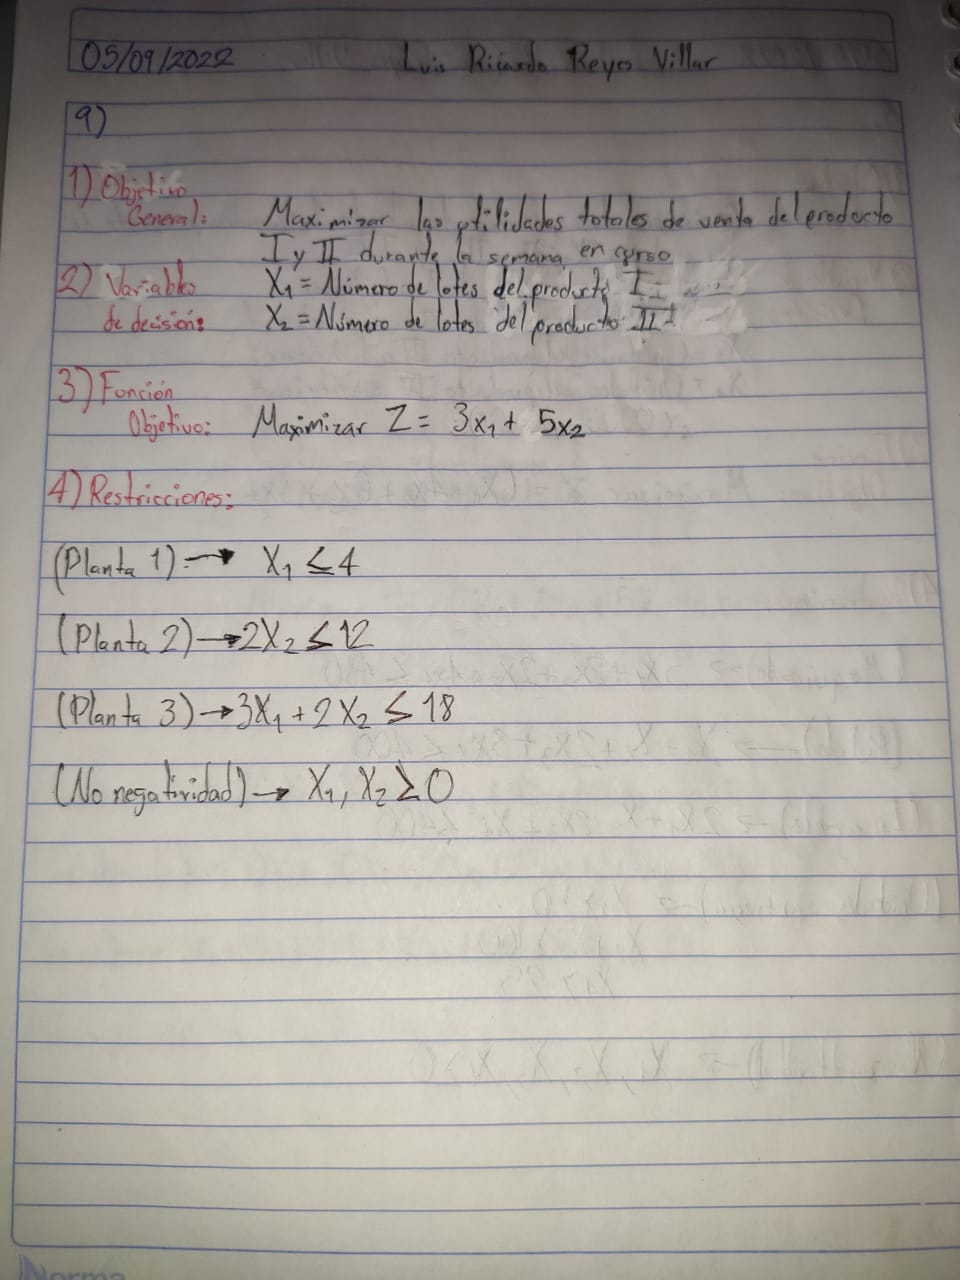 05/09/2022 Luis Ricardo Reyes Villar
9)
1) Objetivo
General: Maximizar las utilidades totales de venta del producto
I y II durante la semana en curso
2) Variables X₁ = Número de lotes del producto I
de decisión: X₂ = Número de lotes del producto II
3) Función
Objetivo: Maximizar Z = 3x₁ + 5x₂
4) Restricciones:
(Planta 1) → X₁ ≤ 4
(Planta 2) → 2X₂ ≤ 12
(Planta 3) → 3X₁ + 2X₂ ≤ 18
(No negatividad) → X₁, X₂ ≥ 0
Norma